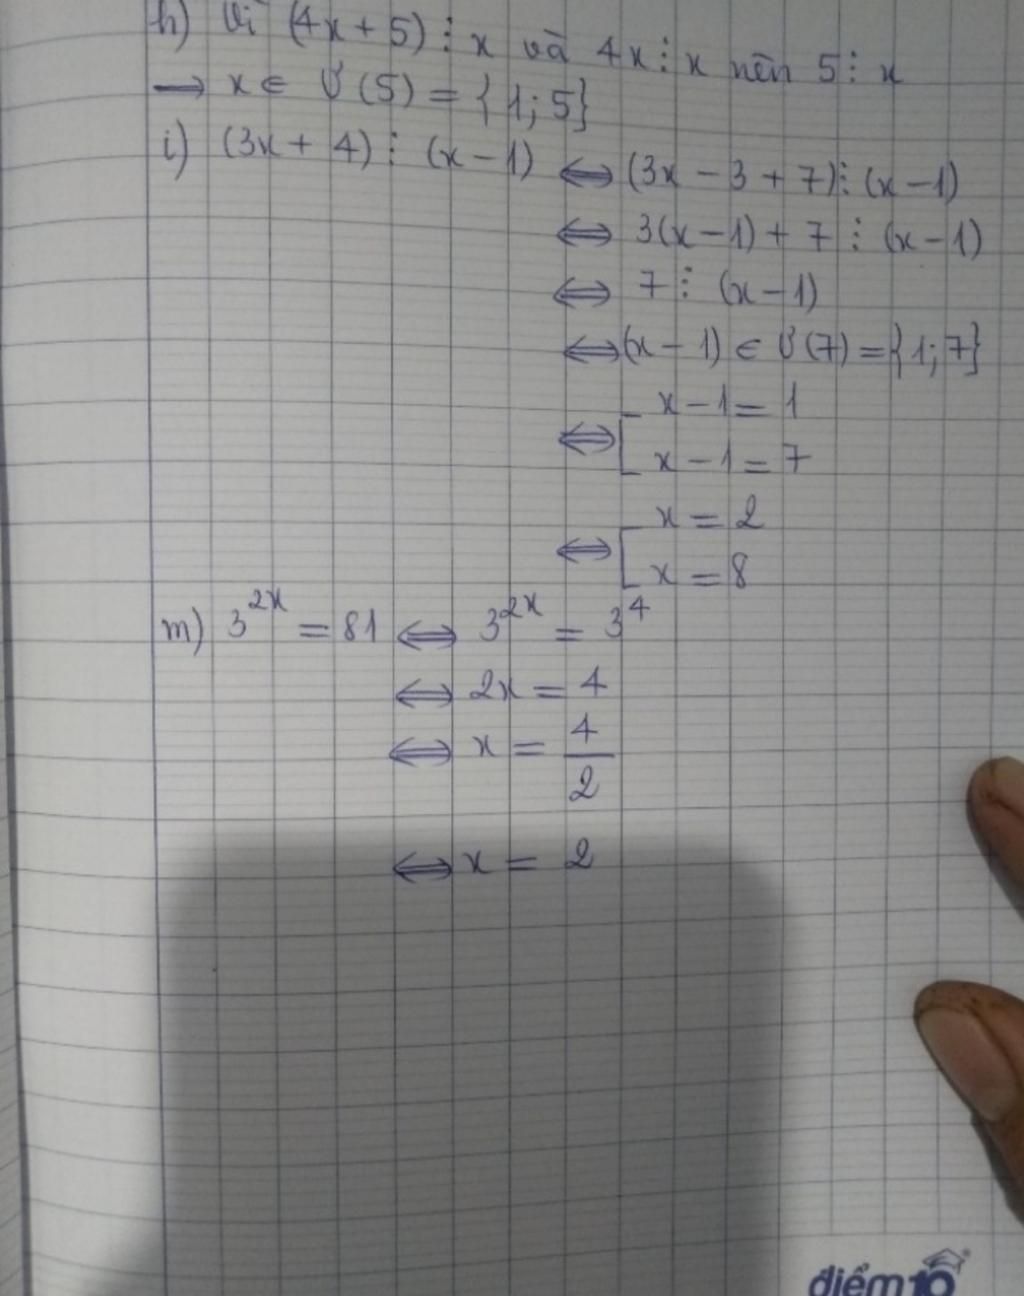 h) Vì (4x + 5) ⋮ x và 4x ⋮ x nên 5 ⋮ x
→ x ∈ Ư(5) = {1; 5}
i) (3x + 4) ⋮ (x − 1) ⇔ (3x − 3 + 7) ⋮ (x − 1)
⇔ 3(x − 1) + 7 ⋮ (x − 1)
⇔ 7 ⋮ (x − 1)
⇔ (x − 1) ∈ Ư(7) = {1; 7}
⇔ [ x − 1 = 1
x − 1 = 7
⇔ [ x = 2
x = 8
m) 3^2x = 81 ⇔ 3^2x = 3^4
⇔ 2x = 4
⇔ x = 4/2
⇔ x = 2
điểm10